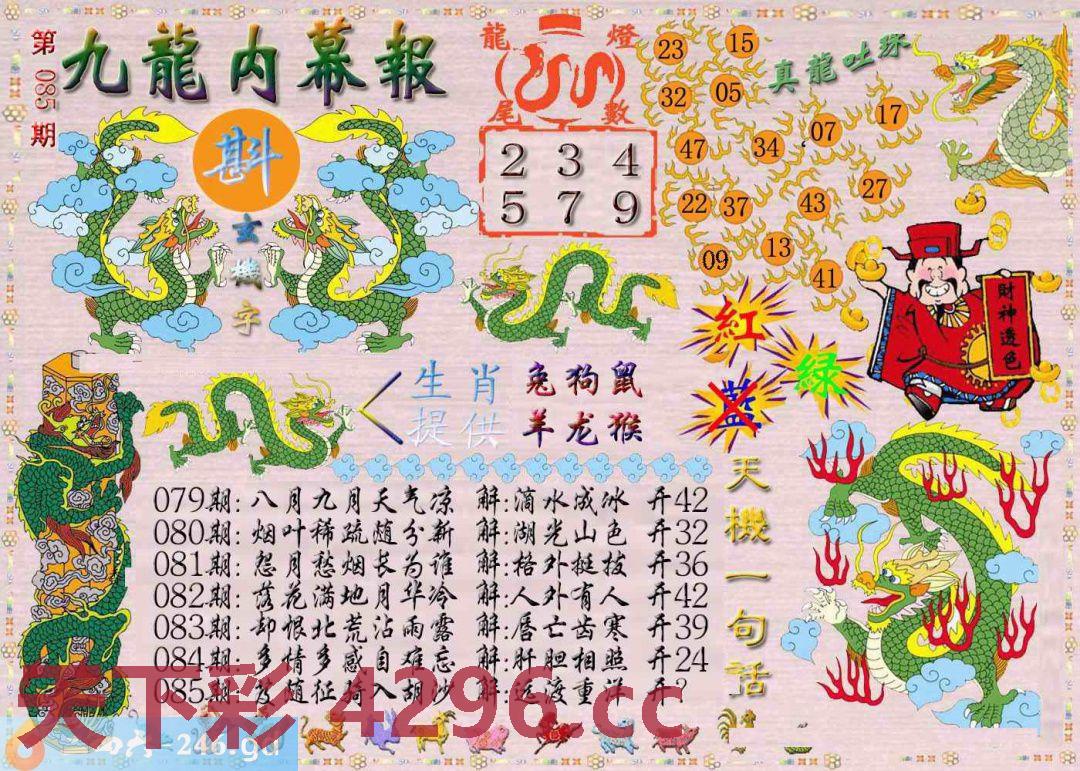 第085期
九龍内幕報
斟
玄機字
龍燈
尾數
2 3 4
5 7 9
真龍吐珠
23 15
32 05
47 34 07 17
22 37 43 27
09 13 41
財神透色
紅
绿
藍
生肖提供
兔狗鼠
羊龙猴
079期: 八月九月天气凉 解:滴水成冰 开42
080期: 烟叶稀疏随分新 解:湖光山色 开32
081期: 怨月愁烟长为谁 解:格外挺拔 开36
082期: 落花满地月华冷 解:人外有人 开42
083期: 却恨北荒沾雨露 解:唇亡齿寒 开39
084期: 多情多感自难忘 解:肝胆相照 开24
085期: 度随征骑入胡沙 解:远渡重洋 开?
天機一句話
天下彩 4296.cc
=246.gd